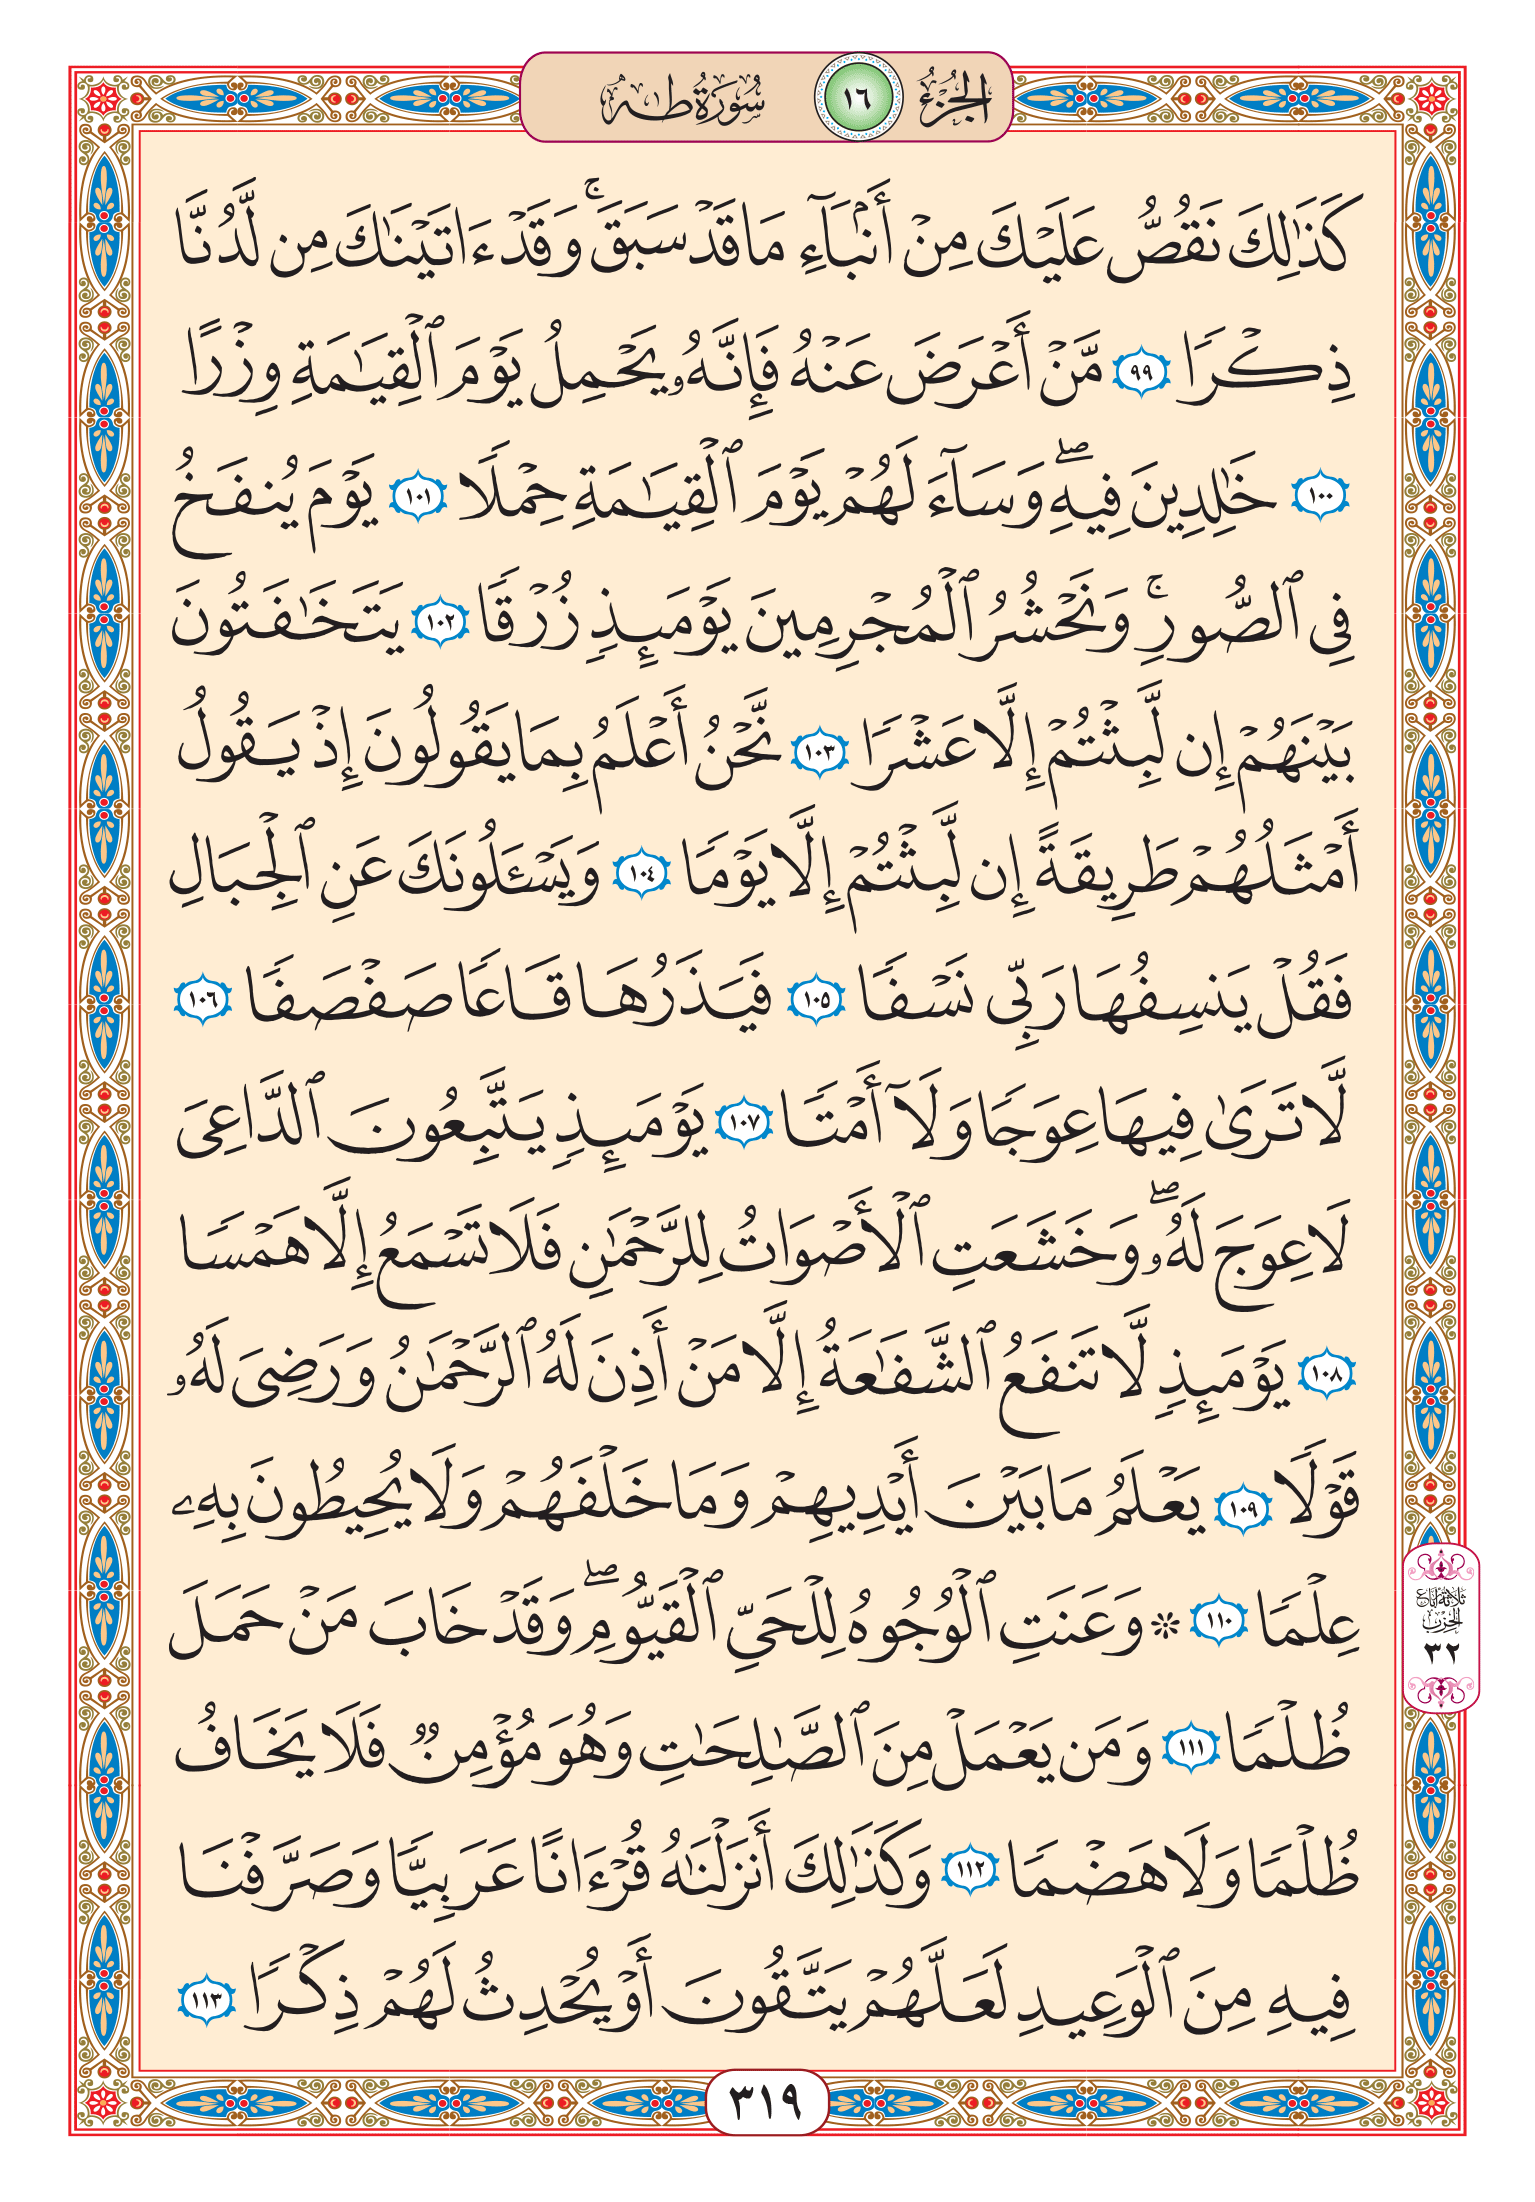 الجزء ١٦ سورة طه
كَذَٰلِكَ نَقُصُّ عَلَيْكَ مِنْ أَنۢبَآءِ مَا قَدْ سَبَقَۚ وَقَدْ ءَاتَيْنَٰكَ مِن لَّدُنَّا
ذِكْرًا ٩٩ مَّنْ أَعْرَضَ عَنْهُ فَإِنَّهُۥ يَحْمِلُ يَوْمَ ٱلْقِيَٰمَةِ وِزْرًا
١٠٠ خَٰلِدِينَ فِيهِۖ وَسَآءَ لَهُمْ يَوْمَ ٱلْقِيَٰمَةِ حِمْلًا ١٠١ يَوْمَ يُنفَخُ
فِى ٱلصُّورِۚ وَنَحْشُرُ ٱلْمُجْرِمِينَ يَوْمَئِذٍ زُرْقًا ١٠٢ يَتَخَٰفَتُونَ
بَيْنَهُمْ إِن لَّبِثْتُمْ إِلَّا عَشْرًا ١٠٣ نَّحْنُ أَعْلَمُ بِمَا يَقُولُونَ إِذْ يَقُولُ
أَمْثَلُهُمْ طَرِيقَةً إِن لَّبِثْتُمْ إِلَّا يَوْمًا ١٠٤ وَيَسْـَٔلُونَكَ عَنِ ٱلْجِبَالِ
فَقُلْ يَنسِفُهَا رَبِّى نَسْفًا ١٠٥ فَيَذَرُهَا قَاعًا صَفْصَفًا ١٠٦
لَّا تَرَىٰ فِيهَا عِوَجًا وَلَآ أَمْتًا ١٠٧ يَوْمَئِذٍ يَتَّبِعُونَ ٱلدَّاعِىَ
لَا عِوَجَ لَهُۥۖ وَخَشَعَتِ ٱلْأَصْوَاتُ لِلرَّحْمَٰنِ فَلَا تَسْمَعُ إِلَّا هَمْسًا
١٠٨ يَوْمَئِذٍ لَّا تَنفَعُ ٱلشَّفَٰعَةُ إِلَّا مَنْ أَذِنَ لَهُ ٱلرَّحْمَٰنُ وَرَضِىَ لَهُۥ
قَوْلًا ١٠٩ يَعْلَمُ مَا بَيْنَ أَيْدِيهِمْ وَمَا خَلْفَهُمْ وَلَا يُحِيطُونَ بِهِۦ
عِلْمًا ١١٠ ۞ وَعَنَتِ ٱلْوُجُوهُ لِلْحَىِّ ٱلْقَيُّومِۖ وَقَدْ خَابَ مَنْ حَمَلَ
ظُلْمًا ١١١ وَمَن يَعْمَلْ مِنَ ٱلصَّٰلِحَٰتِ وَهُوَ مُؤْمِنٌ فَلَا يَخَافُ
ظُلْمًا وَلَا هَضْمًا ١١٢ وَكَذَٰلِكَ أَنزَلْنَٰهُ قُرْءَانًا عَرَبِيًّا وَصَرَّفْنَا
فِيهِ مِنَ ٱلْوَعِيدِ لَعَلَّهُمْ يَتَّقُونَ أَوْ يُحْدِثُ لَهُمْ ذِكْرًا ١١٣
ثلاثة أرباع
الحزب
٣٢
٣١٩